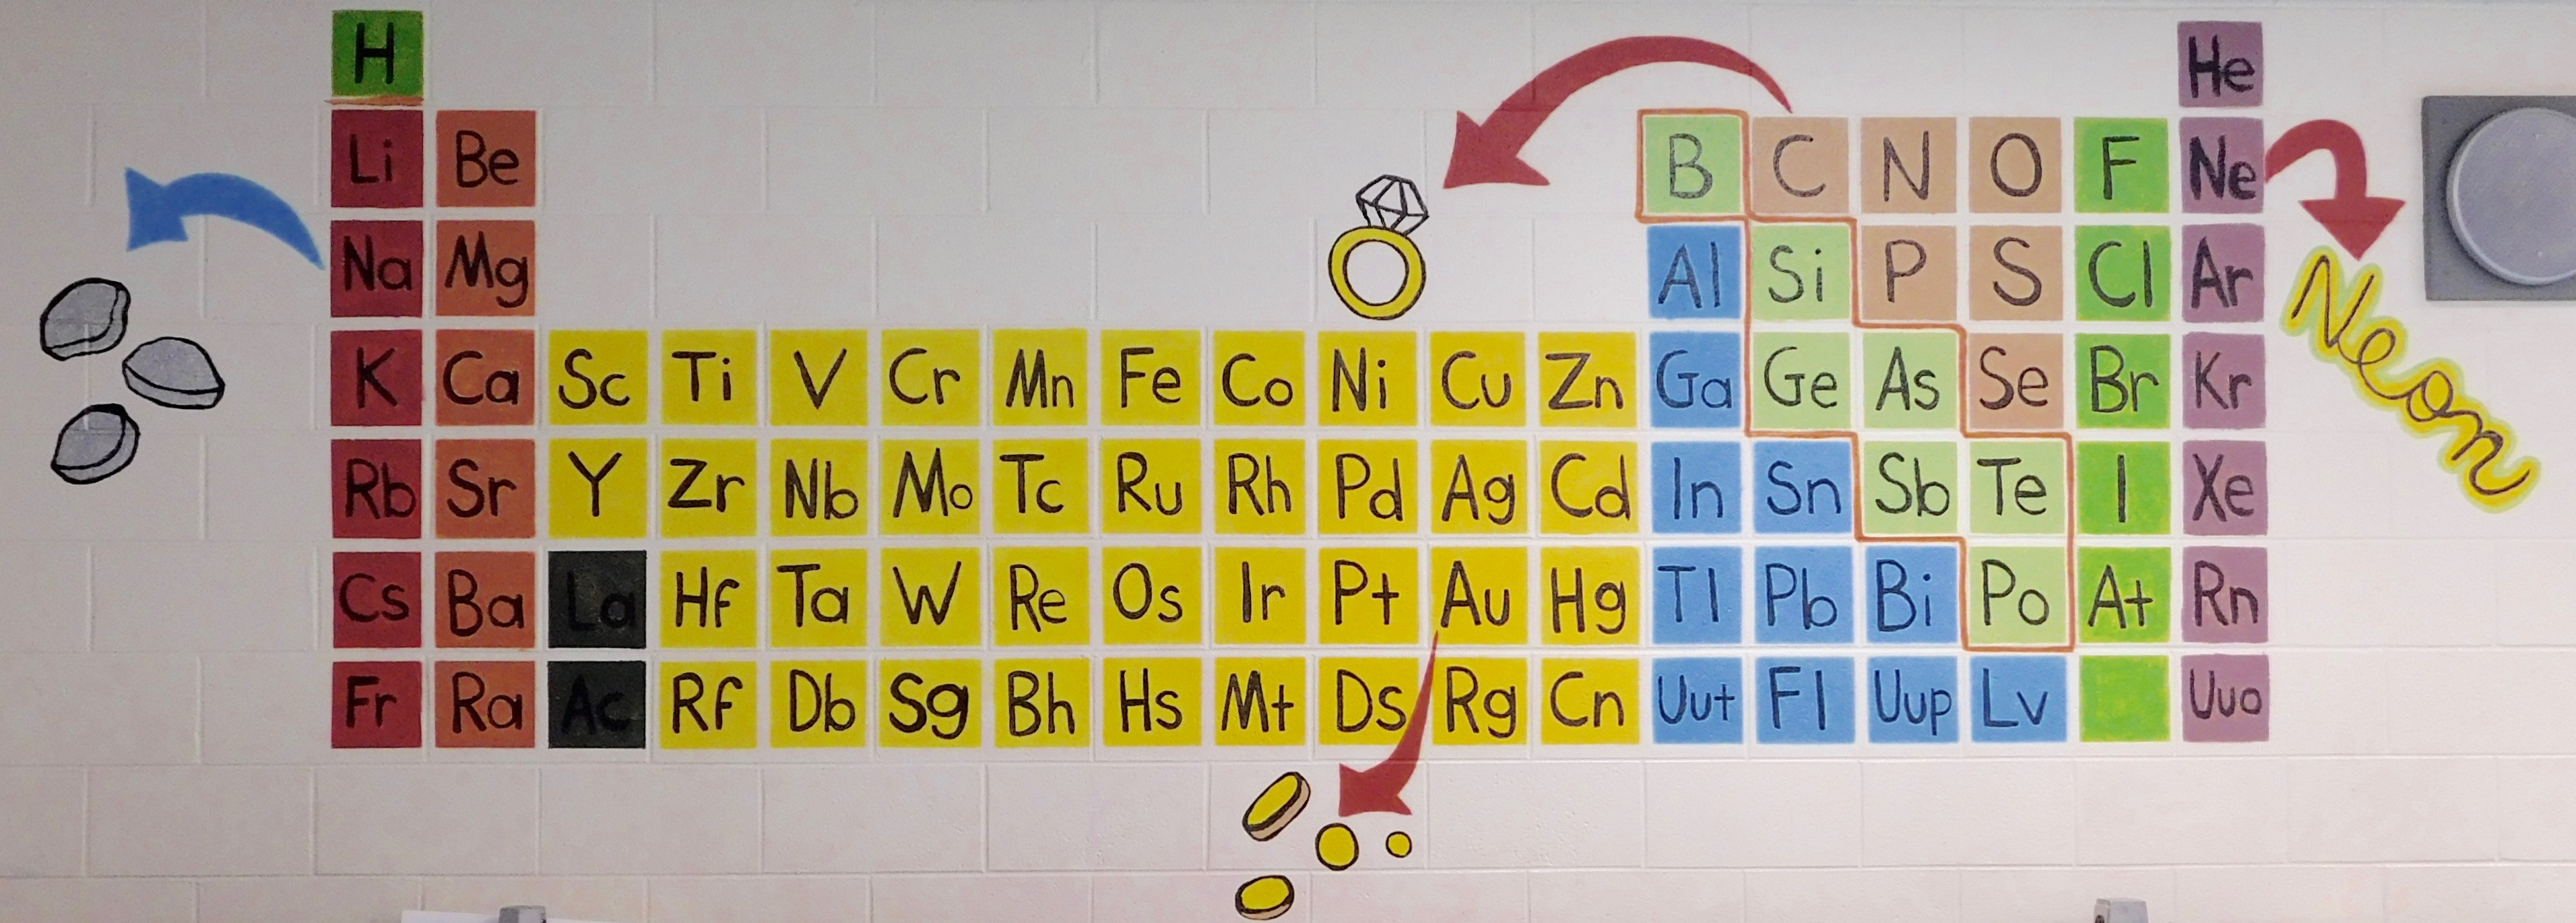 H He
Li Be B C N O F Ne
Na Mg Al Si P S Cl Ar
K Ca Sc Ti V Cr Mn Fe Co Ni Cu Zn Ga Ge As Se Br Kr
Rb Sr Y Zr Nb Mo Tc Ru Rh Pd Ag Cd In Sn Sb Te I Xe
Cs Ba La Hf Ta W Re Os Ir Pt Au Hg Tl Pb Bi Po At Rn
Fr Ra Ac Rf Db Sg Bh Hs Mt Ds Rg Cn Uut Fl Uup Lv Uuo
Neon